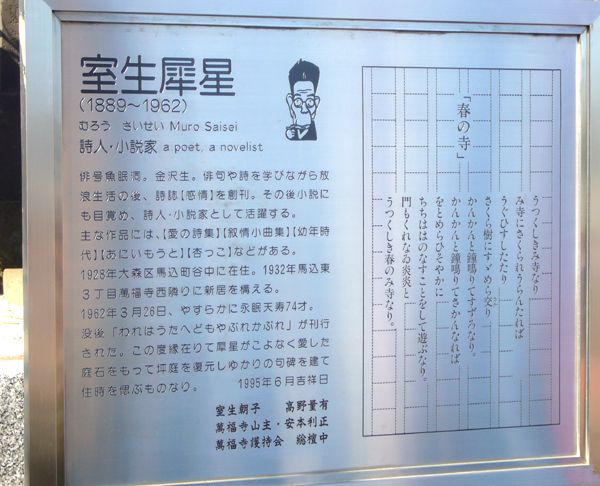 室生犀星
(1889〜1962)
むろう さいせい Muro Saisei
詩人・小説家 a poet, a novelist
俳号魚眠洞。金沢生。俳句や詩を学びながら放
浪生活の後、詩誌【感情】を創刊。その後小説に
も目覚め、詩人・小説家として活躍する。
主な作品には、【愛の詩集】【叙情小曲集】【幼年時
代】【あにいもうと】【杏っこ】などがある。
1928年大森区馬込町谷中に在住。1932年馬込東
3丁目萬福寺西隣りに新居を構える。
1962年3月26日、やすらかに永眠天寿74才。
没後「われはうたへどもやぶれかぶれ」が刊行
された。この度縁在りて犀星がこよなく愛した
庭石をもって坪庭を復元しゆかりの句碑を建て
住時を偲ぶものなり。 1995年6月吉祥日
室生朝子 高野量有
萬福寺山主・安本利正
萬福寺護持会 総檀中
「春の寺」
うつくしきみ寺なり
み寺にさくられうらんたれば
うぐひすしたたり
さくら樹にすゞめら交り
さか
かんかんと鐘鳴りてすずろなり。
かんかんと鐘鳴りてさかんなれば
をとめらひそやかに
ちちははのなすことをして遊ぶなり。
門もくれなゐ炎炎と
うつくしき春のみ寺なり。